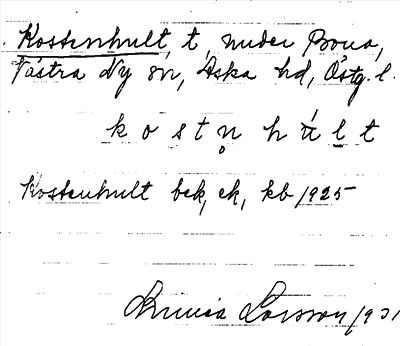 Kostenhult, t, under Bona,
Västra Ny sn, Aska hd, Östg. l.
k o s t n̥ h ú l t
Kostenhult bek, ek, kb 1925
Larsson 1931